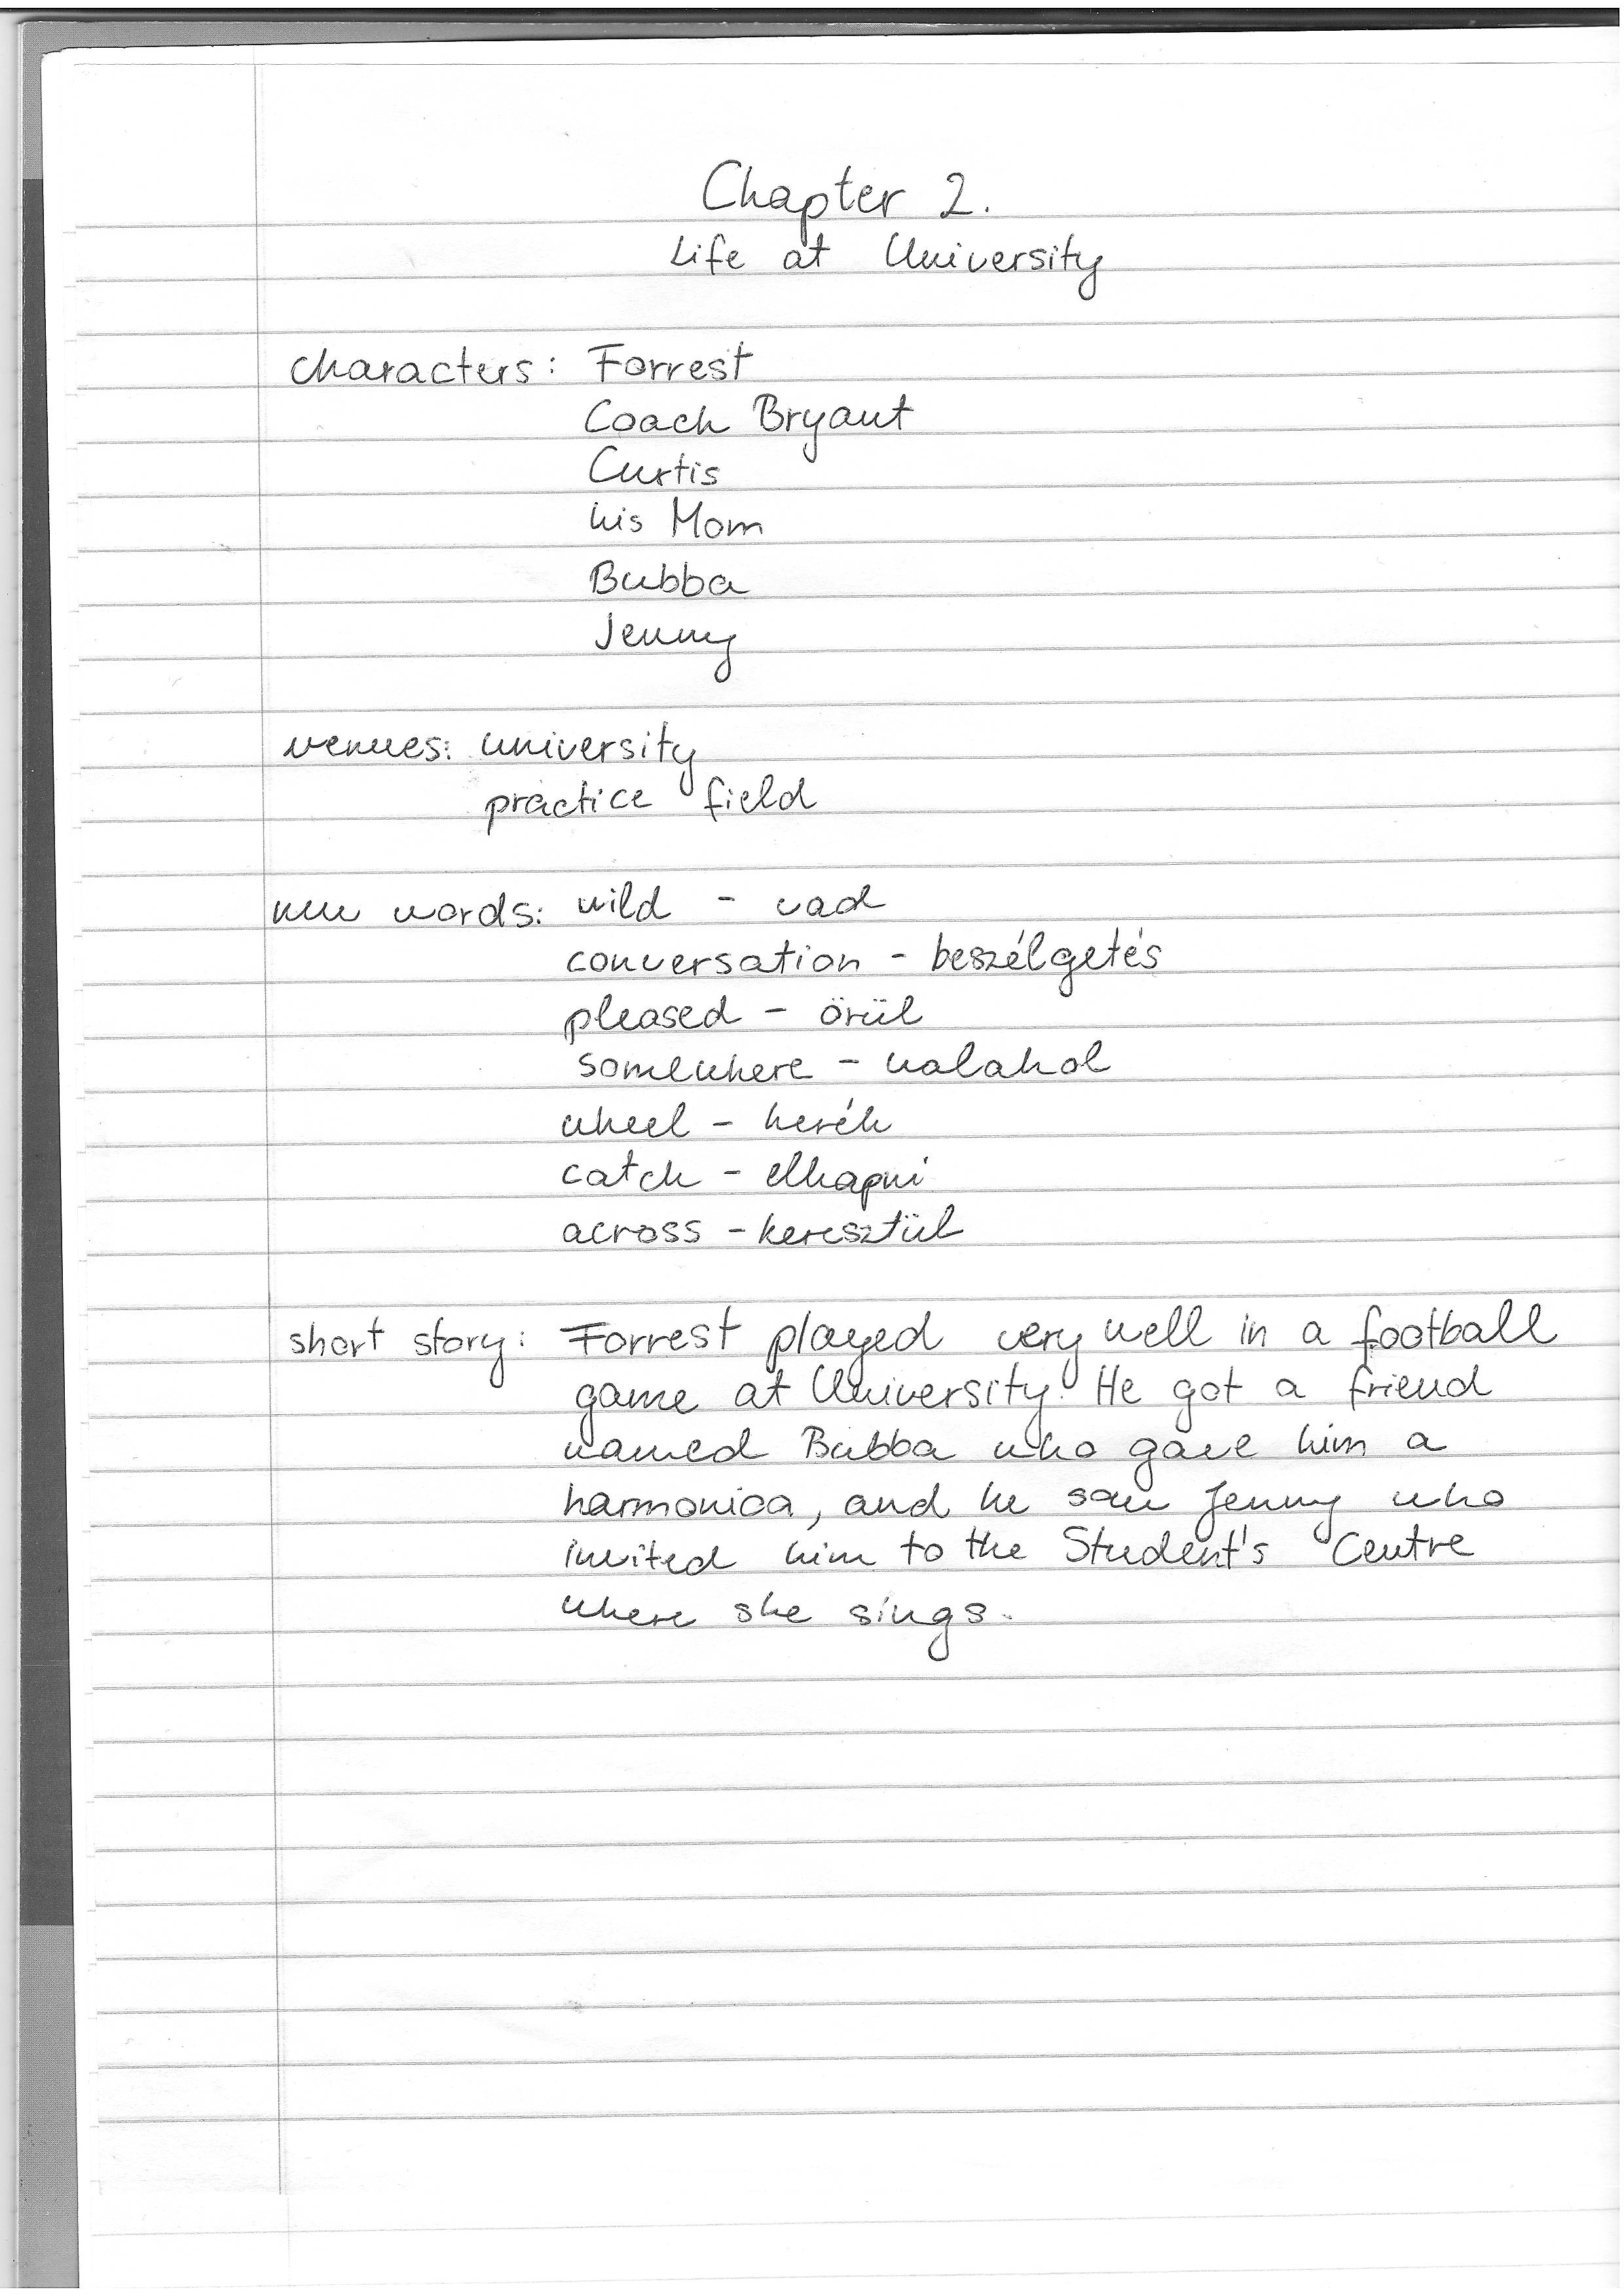 Chapter 2.
Life at University
characters: Forrest
Coach Bryant
Curtis
his Mom
Bubba
Jenny
venues: university
practice field
new words: wild - vad
conversation - beszélgetés
pleased - örül
somewhere - valahol
wheel - kerék
catch - elkapni
across - keresztül
short story: Forrest played very well in a football
game at University. He got a friend
named Bubba who gave him a
harmonica, and he saw Jenny who
invited him to the Student's Centre
where she sings.